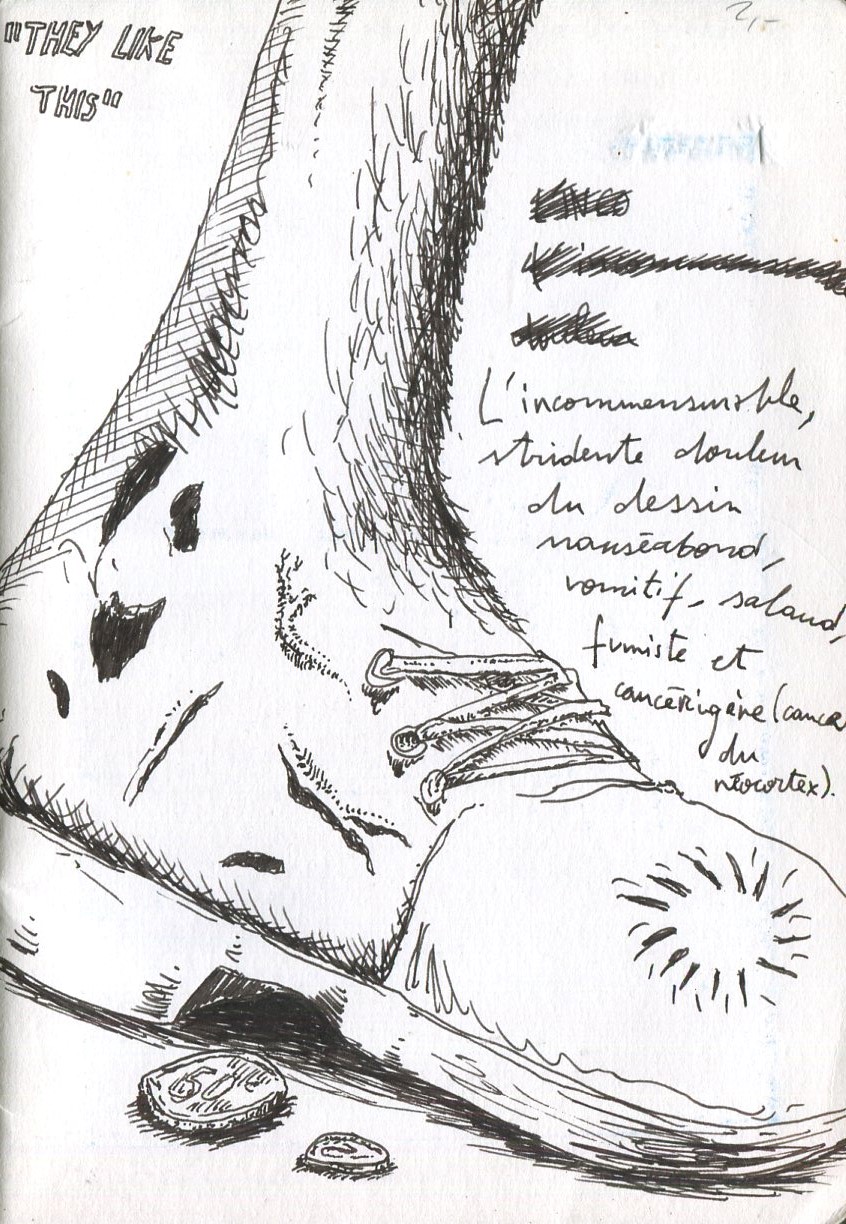 "THEY LIKE
THIS"
2,-
L'incommensurable,
stridente douleur
du dessin
nauséabond,
vomitif, salaud,
fumiste et
cancérigène (cancer
du
néocortex).
50